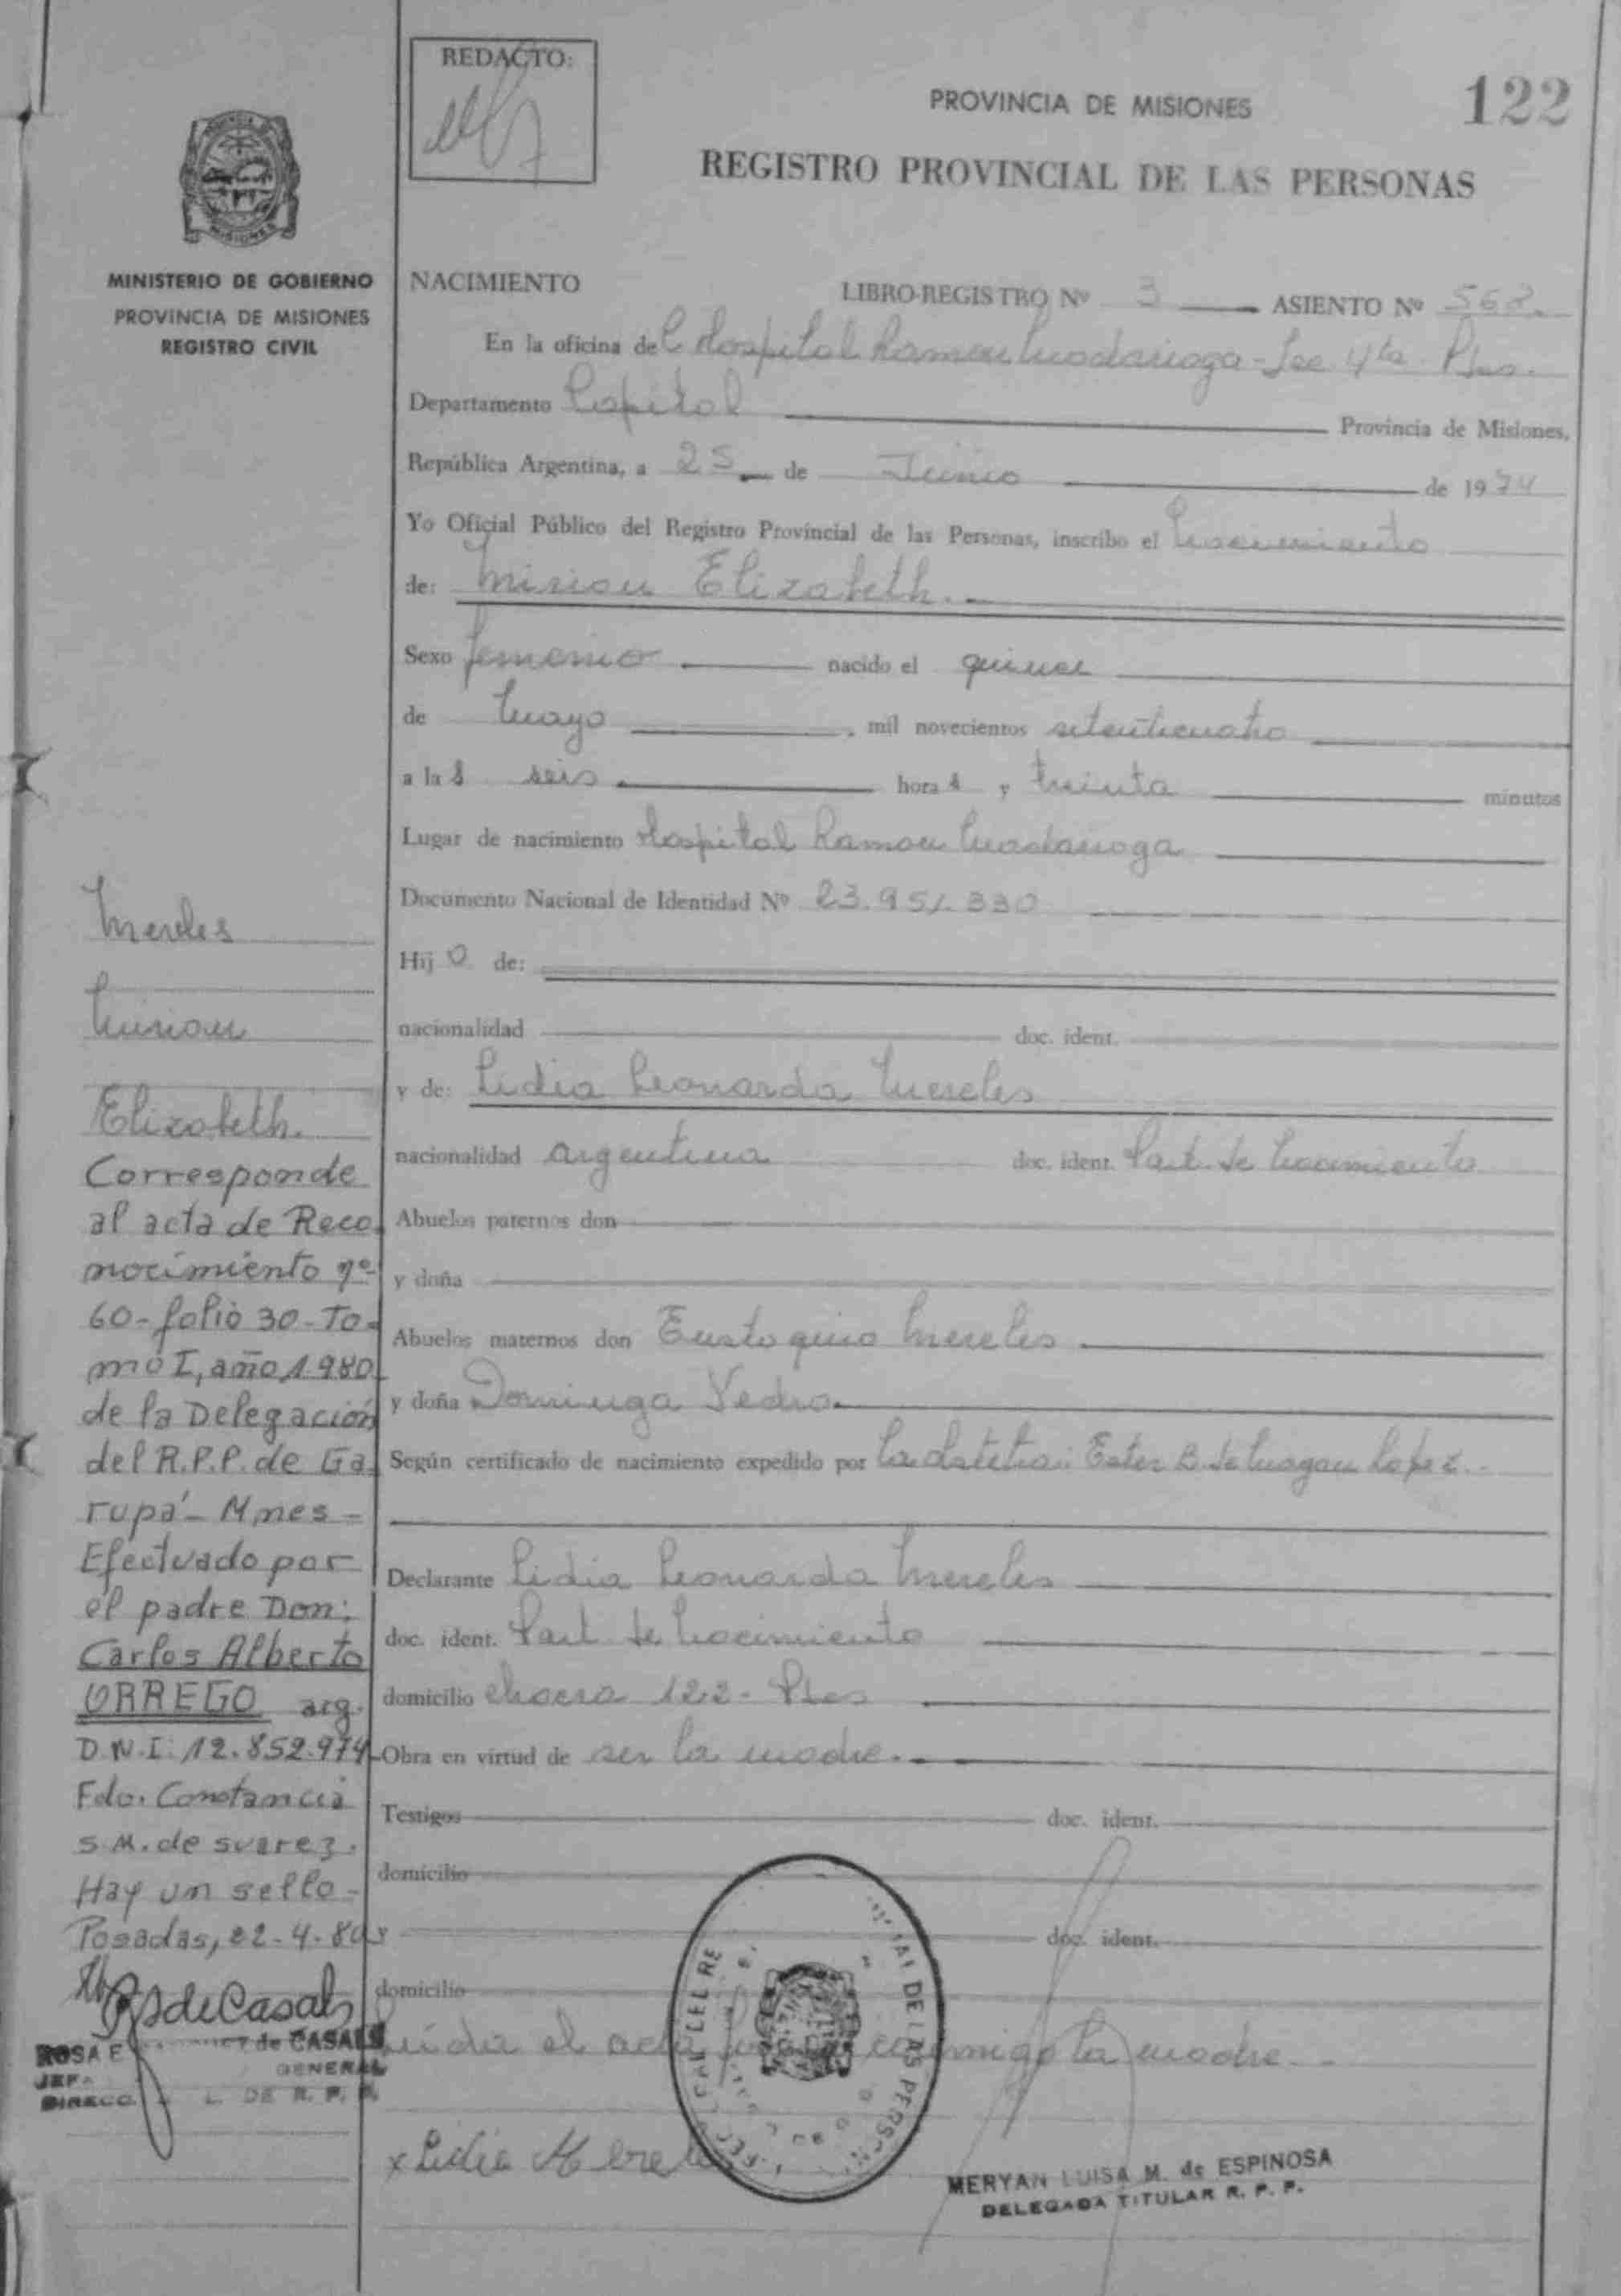 REDACTO:
PROVINCIA DE MISIONES
122
REGISTRO PROVINCIAL DE LAS PERSONAS
MISIONES
MINISTERIO DE GOBIERNO
PROVINCIA DE MISIONES
REGISTRO CIVIL
NACIMIENTO
LIBRO-REGISTRO Nº 3 ASIENTO Nº 562.
En la oficina del Hospital Ramon Madariaga - Sec. 4ta Pdas.
Departamento Capital Provincia de Misiones,
República Argentina, a 25 de Junio de 1974
Yo Oficial Público del Registro Provincial de las Personas, inscribo el Nacimiento
de: Mirian Elizabeth.
Sexo femenio nacido el quince
de Mayo , mil novecientos setenticuatro
a las seis horas y treinta minutos
Lugar de nacimiento Hospital Ramon Madariaga
Documento Nacional de Identidad Nº 23.951.330
Hijo de:
nacionalidad doc. ident.
y de: Lidia Leonarda Mereles
nacionalidad argentina doc. ident. Part. de Nacimiento
Abuelos paternos don
y doña
Abuelos maternos don Eustoquio Mereles
y doña Dominga Vedro
Según certificado de nacimiento expedido por la obstetra: Ester B. de Lopez.
Declarante Lidia Leonarda Mereles
doc. ident. Part. de Nacimiento
domicilio chacra 122 - Pdas
Obra en virtud de ser la madre.
Testigos doc. ident.
domicilio
y doc. ident.
domicilio
Leida el acta firma conmigo la madre.
x Lidia Merele
MERYAN LUISA M. de ESPINOSA
DELEGADA TITULAR R. P. P.
Mereles
Mirian
Elizabeth.
Corresponde
al acta de Reco
nocimiento nº
60-folio 30-To=
mo I, año 1980
de la Delegación
del R.P.P. de Ga
rupá - Mnes -
Efectuado por
el padre Don:
Carlos Alberto
ORREGO arg.
D.N.I: 12.852.974
Fdo. Constancia
S.M. de suarez.
Hay un sello -
Posadas, 22-4-80
de Casals
ROSA E de CASALS
JEFA GENERAL
DIRECC. L. DE R. P. P.
DE LAS PERSON